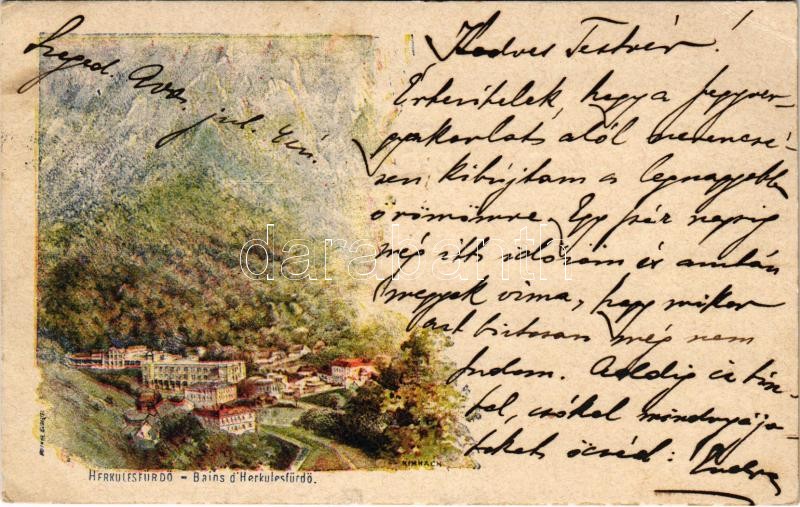 Szeged. 900. jul. 4én.
Kedves Testvér!
Értesítelek, hogy a fegyver-
gyakorlats alól szerencsé-
sen kibújtam és legnagyobb
örömömre. Egy pár napig
még itt időzöm és aztán
megyek vissza, hogy mikor
azt biztosan még nem
tudom. Addig is tisz-
tel, csókol mindnyája-
tokat öcséd:
darabanth
KIMNACH
HERKULESFÜRDŐ – Bains d'Herkulesfürdő.